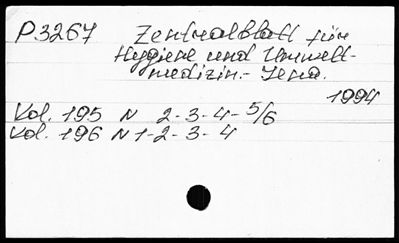 P3267 Zentralblatt für
Hygiene und Umwelt-
medizin.- Jena.
1994
Vol. 195 N 2-3-4-5/6
Vol. 196 N 1-2-3-4